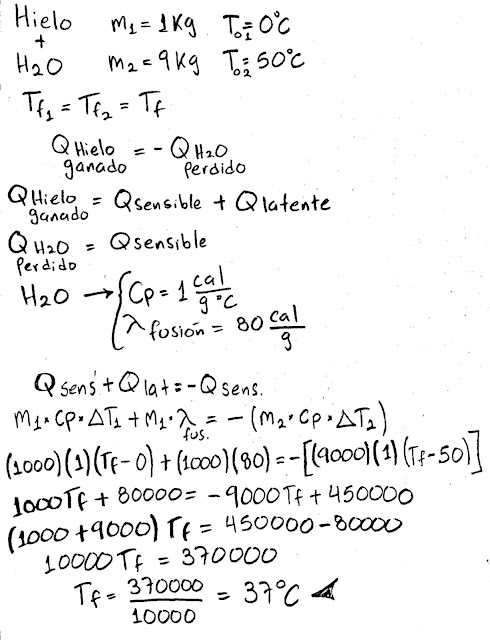 Hielo m₁ = 1Kg T₀₁ = 0°C
+
H2O m₂ = 9Kg T₀₂ = 50°C
Tf₁ = Tf₂ = Tf
Q Hielo ganado = - Q H2O perdido
Q Hielo ganado = Qsensible + Qlatente
Q H2O perdido = Qsensible
H2O → { Cp = 1 cal/g°C
λ fusión = 80 cal/g
Qsens + Qlat = -Qsens.
m₁·Cp·ΔT₁ + m₁·λfus. = - (m₂·Cp·ΔT₂)
(1000)(1)(Tf-0) + (1000)(80) = -[(9000)(1)(Tf-50)]
1000Tf + 80000 = -9000Tf + 450000
(1000 + 9000) Tf = 450000 - 80000
10000 Tf = 370000
Tf = 370000/10000 = 37°C